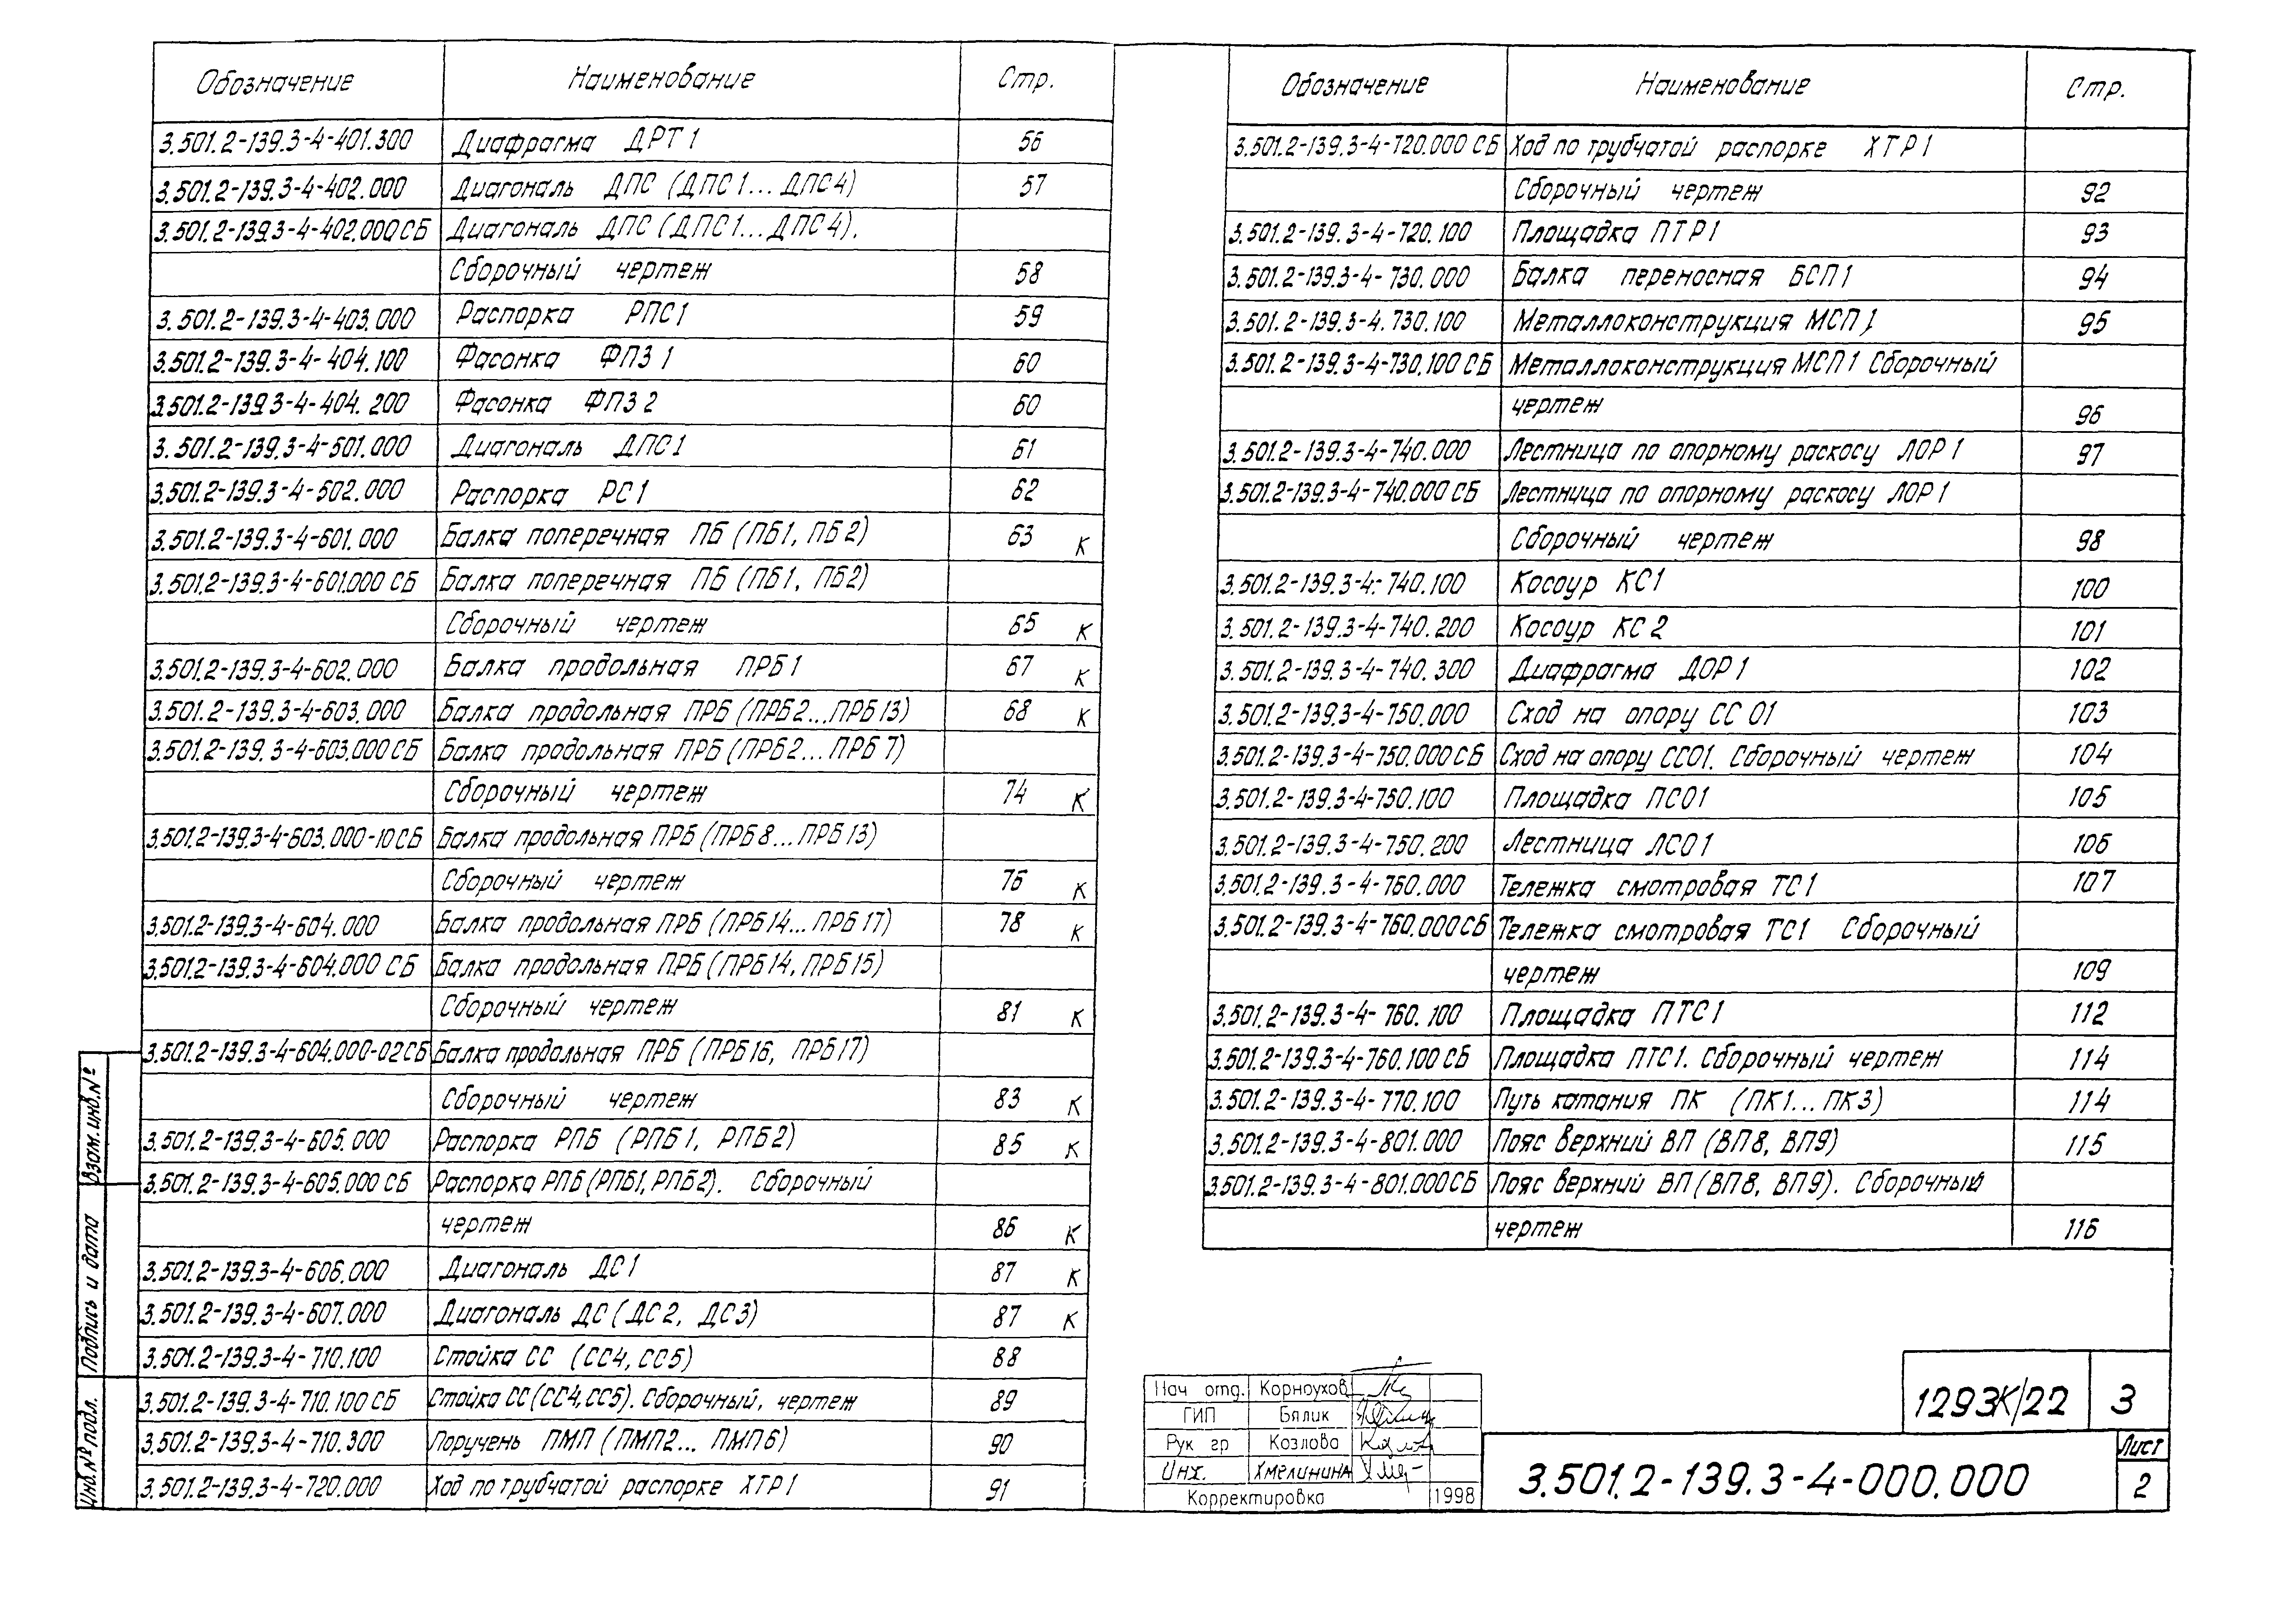 Обозначение Наименование Стр.
3.501.2-139.3-4-401.300 Диафрагма ДРТ1 56
3.501.2-139.3-4-402.000 Диагональ ДПС (ДПС1...ДПС4) 57
3.501.2-139.3-4-402.000СБ Диагональ ДПС (ДПС1...ДПС4).
Сборочный чертеж 58
3.501.2-139.3-4-403.000 Распорка РПС1 59
3.501.2-139.3-4-404.100 Фасонка ФПЗ1 60
3.501.2-139.3-4-404.200 Фасонка ФПЗ2 60
3.501.2-139.3-4-501.000 Диагональ ДПС1 61
3.501.2-139.3-4-502.000 Распорка РС1 62
3.501.2-139.3-4-601.000 Балка поперечная ПБ (ПБ1, ПБ2) 63 К
3.501.2-139.3-4-601.000 СБ Балка поперечная ПБ (ПБ1, ПБ2)
Сборочный чертеж 65 К
3.501.2-139.3-4-602.000 Балка продольная ПРБ1 67 К
3.501.2-139.3-4-603.000 Балка продольная ПРБ (ПРБ2...ПРБ13) 68 К
3.501.2-139.3-4-603.000СБ Балка продольная ПРБ (ПРБ2...ПРБ7)
Сборочный чертеж 74 К
3.501.2-139.3-4-603.000-10СБ Балка продольная ПРБ (ПРБ8...ПРБ13)
Сборочный чертеж 76 К
3.501.2-139.3-4-604.000 Балка продольная ПРБ (ПРБ14...ПРБ17) 78 К
3.501.2-139.3-4-604.000 СБ Балка продольная ПРБ (ПРБ14, ПРБ15)
Сборочный чертеж 81 К
3.501.2-139.3-4-604.000-02СБ Балка продольная ПРБ (ПРБ16, ПРБ17)
Сборочный чертеж 83 К
3.501.2-139.3-4-605.000 Распорка РПБ (РПБ1, РПБ2) 85 К
3.501.2-139.3-4-605.000 СБ Распорка РПБ (РПБ1, РПБ2). Сборочный
чертеж 86 К
3.501.2-139.3-4-606.000 Диагональ ДС1 87 К
3.501.2-139.3-4-607.000 Диагональ ДС (ДС2, ДС3) 87 К
3.501.2-139.3-4-710.100 Стойка СС (СС4, СС5) 88
3.501.2-139.3-4-710.100 СБ Стойка СС (СС4, СС5). Сборочный, чертеж 89
3.501.2-139.3-4-710.300 Поручень ПМП (ПМП2... ПМП6) 90
3.501.2-139.3-4-720.000 Ход по трубчатой распорке ХТР1 91
Обозначение Наименование Стр.
3.501.2-139.3-4-720.000 СБ Ход по трубчатой распорке ХТР1
Сборочный чертеж 92
3.501.2-139.3-4-720.100 Площадка ПТР1 93
3.501.2-139.3-4-730.000 Балка переносная БСП1 94
3.501.2-139.3-4.730.100 Металлоконструкция МСП1 95
3.501.2-139.3-4-730.100 СБ Металлоконструкция МСП1 Сборочный
чертеж 96
3.501.2-139.3-4-740.000 Лестница по опорному раскосу ЛОР1 97
3.501.2-139.3-4-740.000 СБ Лестница по опорному раскосу ЛОР1
Сборочный чертеж 98
3.501.2-139.3-4-740.100 Косоур КС1 100
3.501.2-139.3-4-740.200 Косоур КС2 101
3.501.2-139.3-4-740.300 Диафрагма ДОР1 102
3.501.2-139.3-4-750.000 Сход на опору ССО1 103
3.501.2-139.3-4-750.000 СБ Сход на опору ССО1. Сборочный чертеж 104
3.501.2-139.3-4-750.100 Площадка ПСО1 105
3.501.2-139.3-4-750.200 Лестница ЛСО1 106
3.501.2-139.3-4-760.000 Тележка смотровая ТС1 107
3.501.2-139.3-4-760.000СБ Тележка смотровая ТС1 Сборочный
чертеж 109
3.501.2-139.3-4-760.100 Площадка ПТС1 112
3.501.2-139.3-4-760.100 СБ Площадка ПТС1. Сборочный чертеж 114
3.501.2-139.3-4-770.100 Путь катания ПК (ПК1...ПК3) 114
3.501.2-139.3-4-801.000 Пояс верхний ВП (ВП8, ВП9) 115
3.501.2-139.3-4-801.000СБ Пояс верхний ВП (ВП8, ВП9). Сборочный
чертеж 116
Взам. инв. №
Подпись и дата
Инв. № подл.
Нач отд. Корноухов
ГИП Бялик
Рук гр Козлова
Инж. Хмелинина
Корректировка 1998
1293К/22 3
3.501.2-139.3-4-000.000
Лист
2